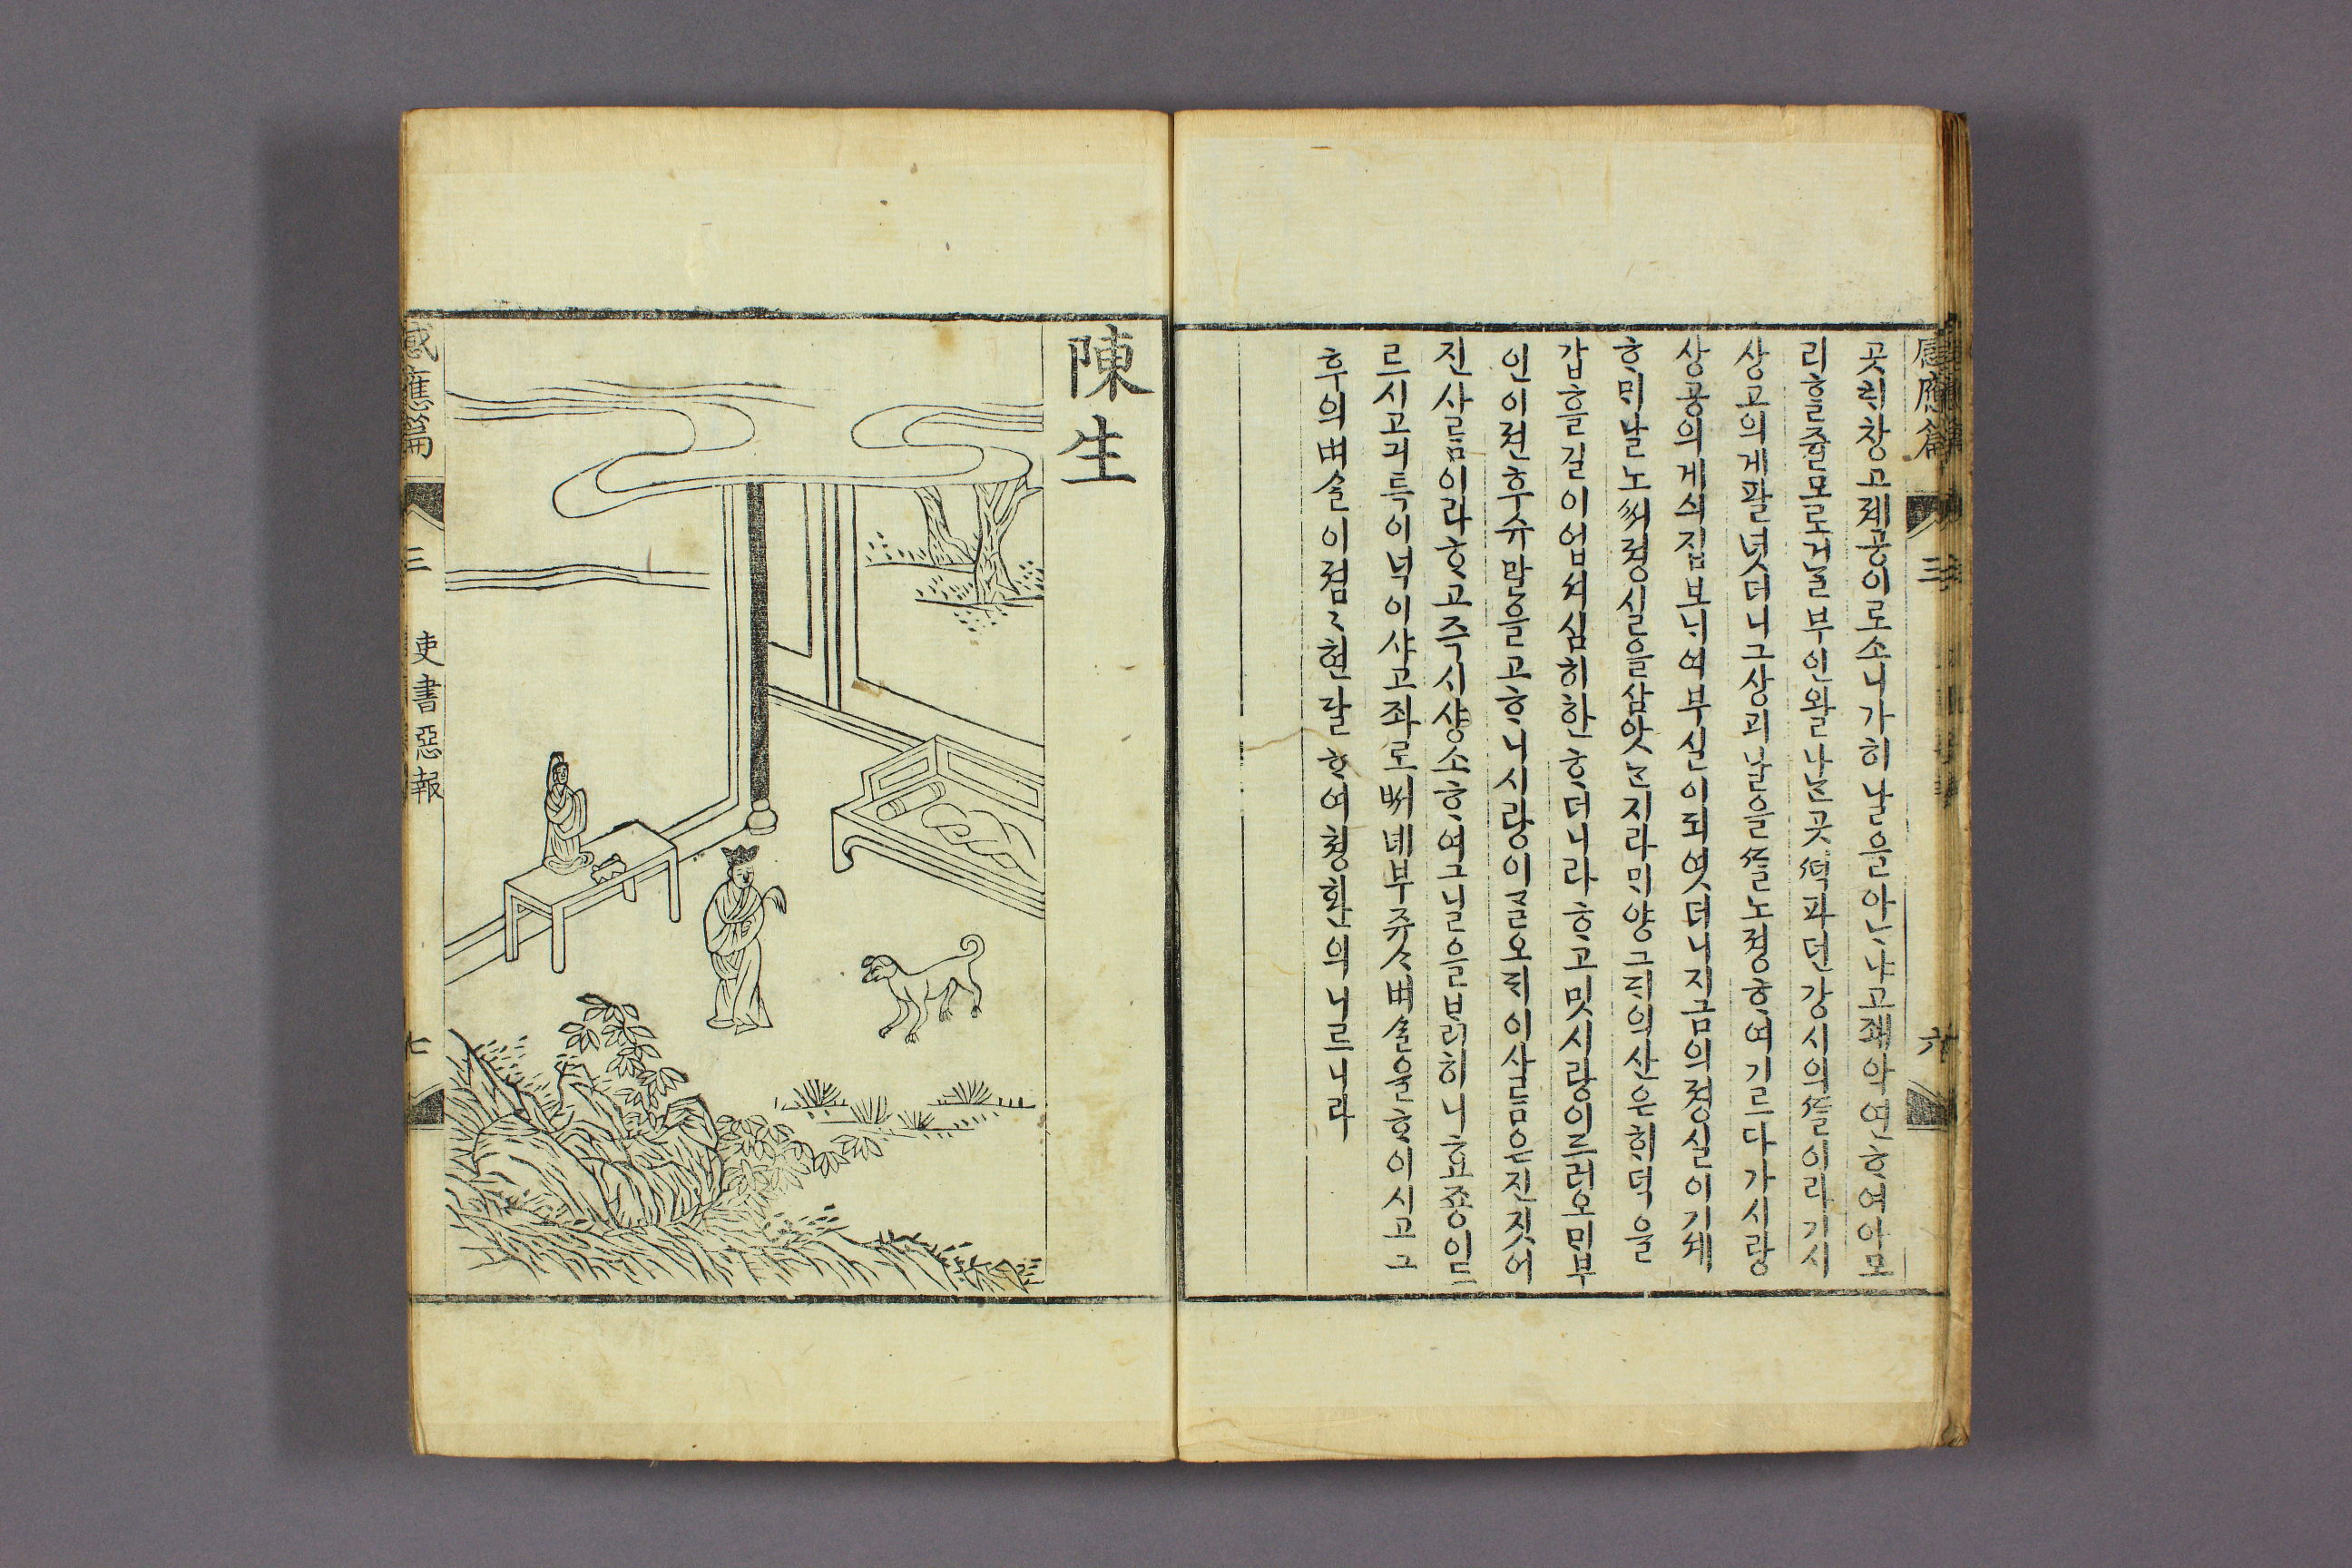 感應篇 三 六
곳려창고졔공이로소니가히날을아ᄂᆞ냐고졔악연ᄒᆞ여아모
리ᄒᆞᆯ줄모로거ᄂᆞᆯ부인왈나ᄂᆞᆫ곳셕파던강시의ᄯᆞᆯ이라기시
상고의게팔녓더니그상괴날을ᄯᆞᆯ노졍ᄒᆞ여기르다가시랑
상공의게싀집보ᄂᆡ여부실이되엿더니지금의졍실이기셰
ᄒᆞᄆᆡ날노ᄡᅥ졍실을삼앗ᄂᆞᆫ지라ᄆᆡ양그ᄃᆡ의산은혜덕을
갑흘길이업셔심히한ᄒᆞ더니라ᄒᆞ고밋시랑이드러오ᄆᆡ부
인이젼후슈말을고ᄒᆞ니시랑이ᄀᆞᆯ오ᄃᆡ이사ᄅᆞᆷ은진짓어
진사ᄅᆞᆷ이라ᄒᆞ고즉시샹소ᄒᆞ여그닐을ᄇᆞᆯ히니효종이드
르시고긔특이넉이샤고좌로ᄡᅥ녜부쥬ᄉᆞ벼슬을ᄒᆞ이시고그
후의벼슬이졈〻현달ᄒᆞ여졍환의니르니라
陳生
感應篇 三 吏書惡報 七